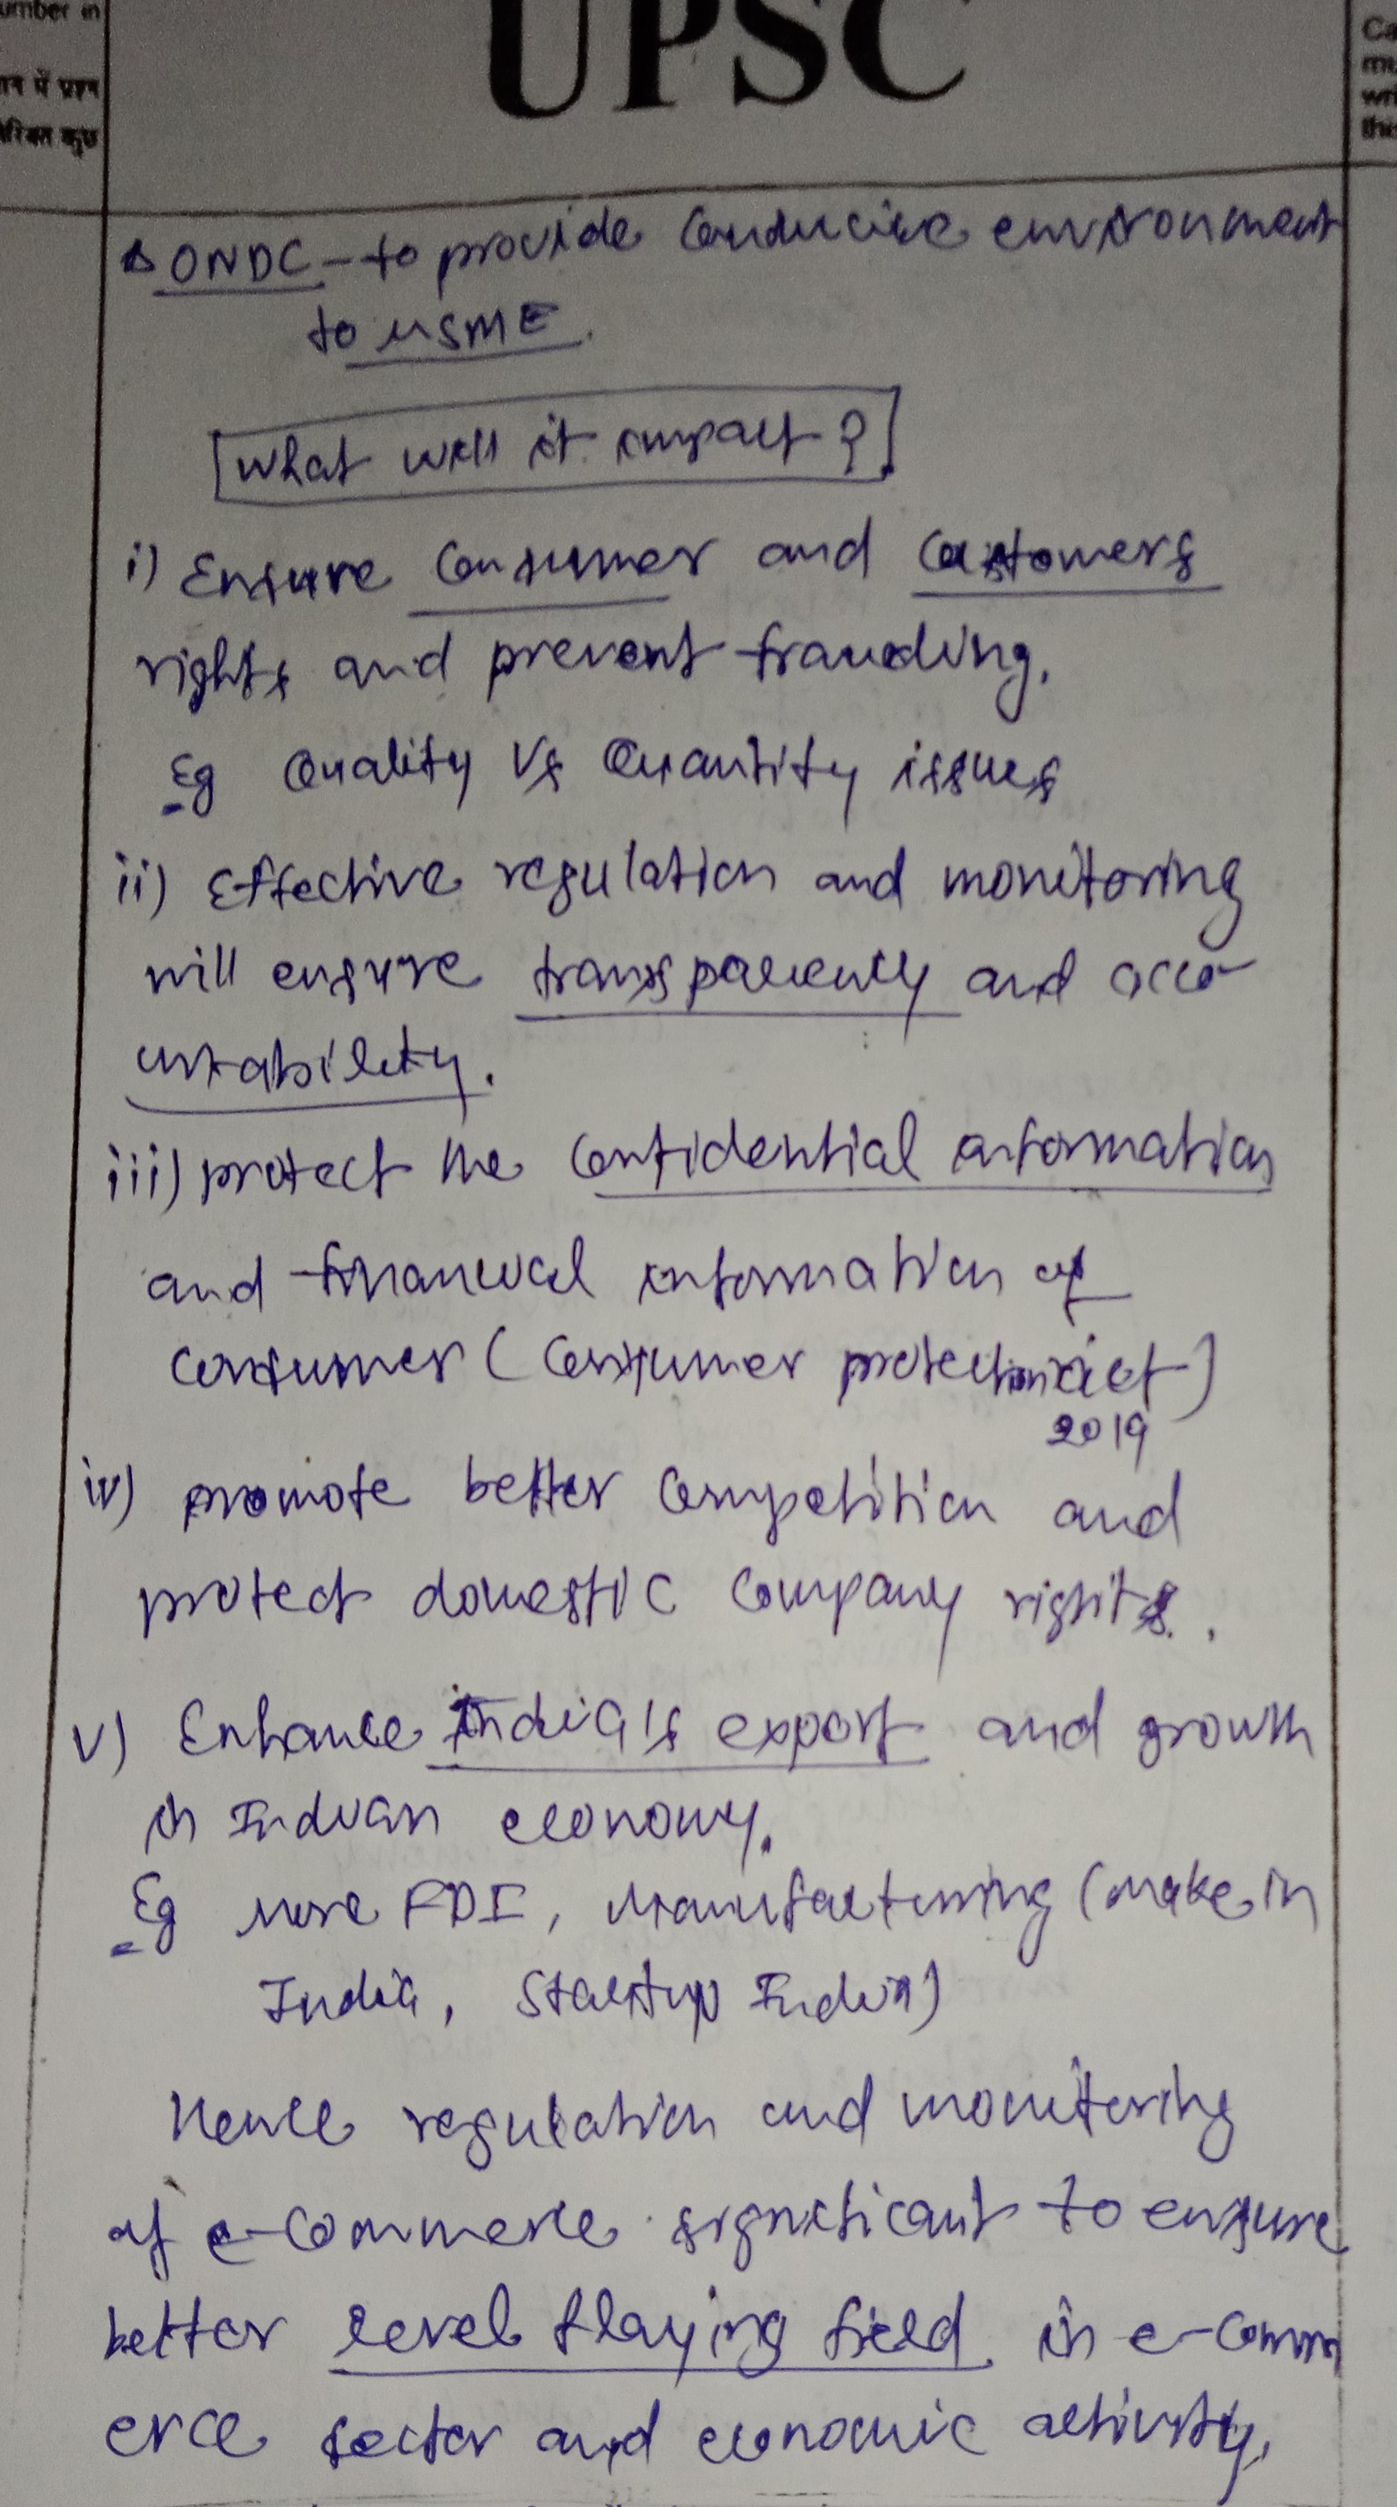 umber in
UPSC
Ca
mu
wri
this
न में प्रश्न
रिक्त कुछ
ONDC - to provide conducive environment
to MSME.
What will it impact?
i) Ensure Consumer and Customers
rights and prevent frauding.
Eg Quality Vs Quantity issues
ii) Effective regulation and monitoring
will ensure transparency and acco-
untability.
iii) protect the Confidential information
and financial information of
consumer (Consumer protection act)
2019
iv) promote better Competition and
protect domestic Company rights.
v) Enhance India's export and growth
in Indian economy.
Eg More FDI, Manufacturing (Make in
India, Startup India)
Hence regulation and monitoring
of e-Commerce significant to ensure
better level flaying field in e-comm
erce sector and economic activity.